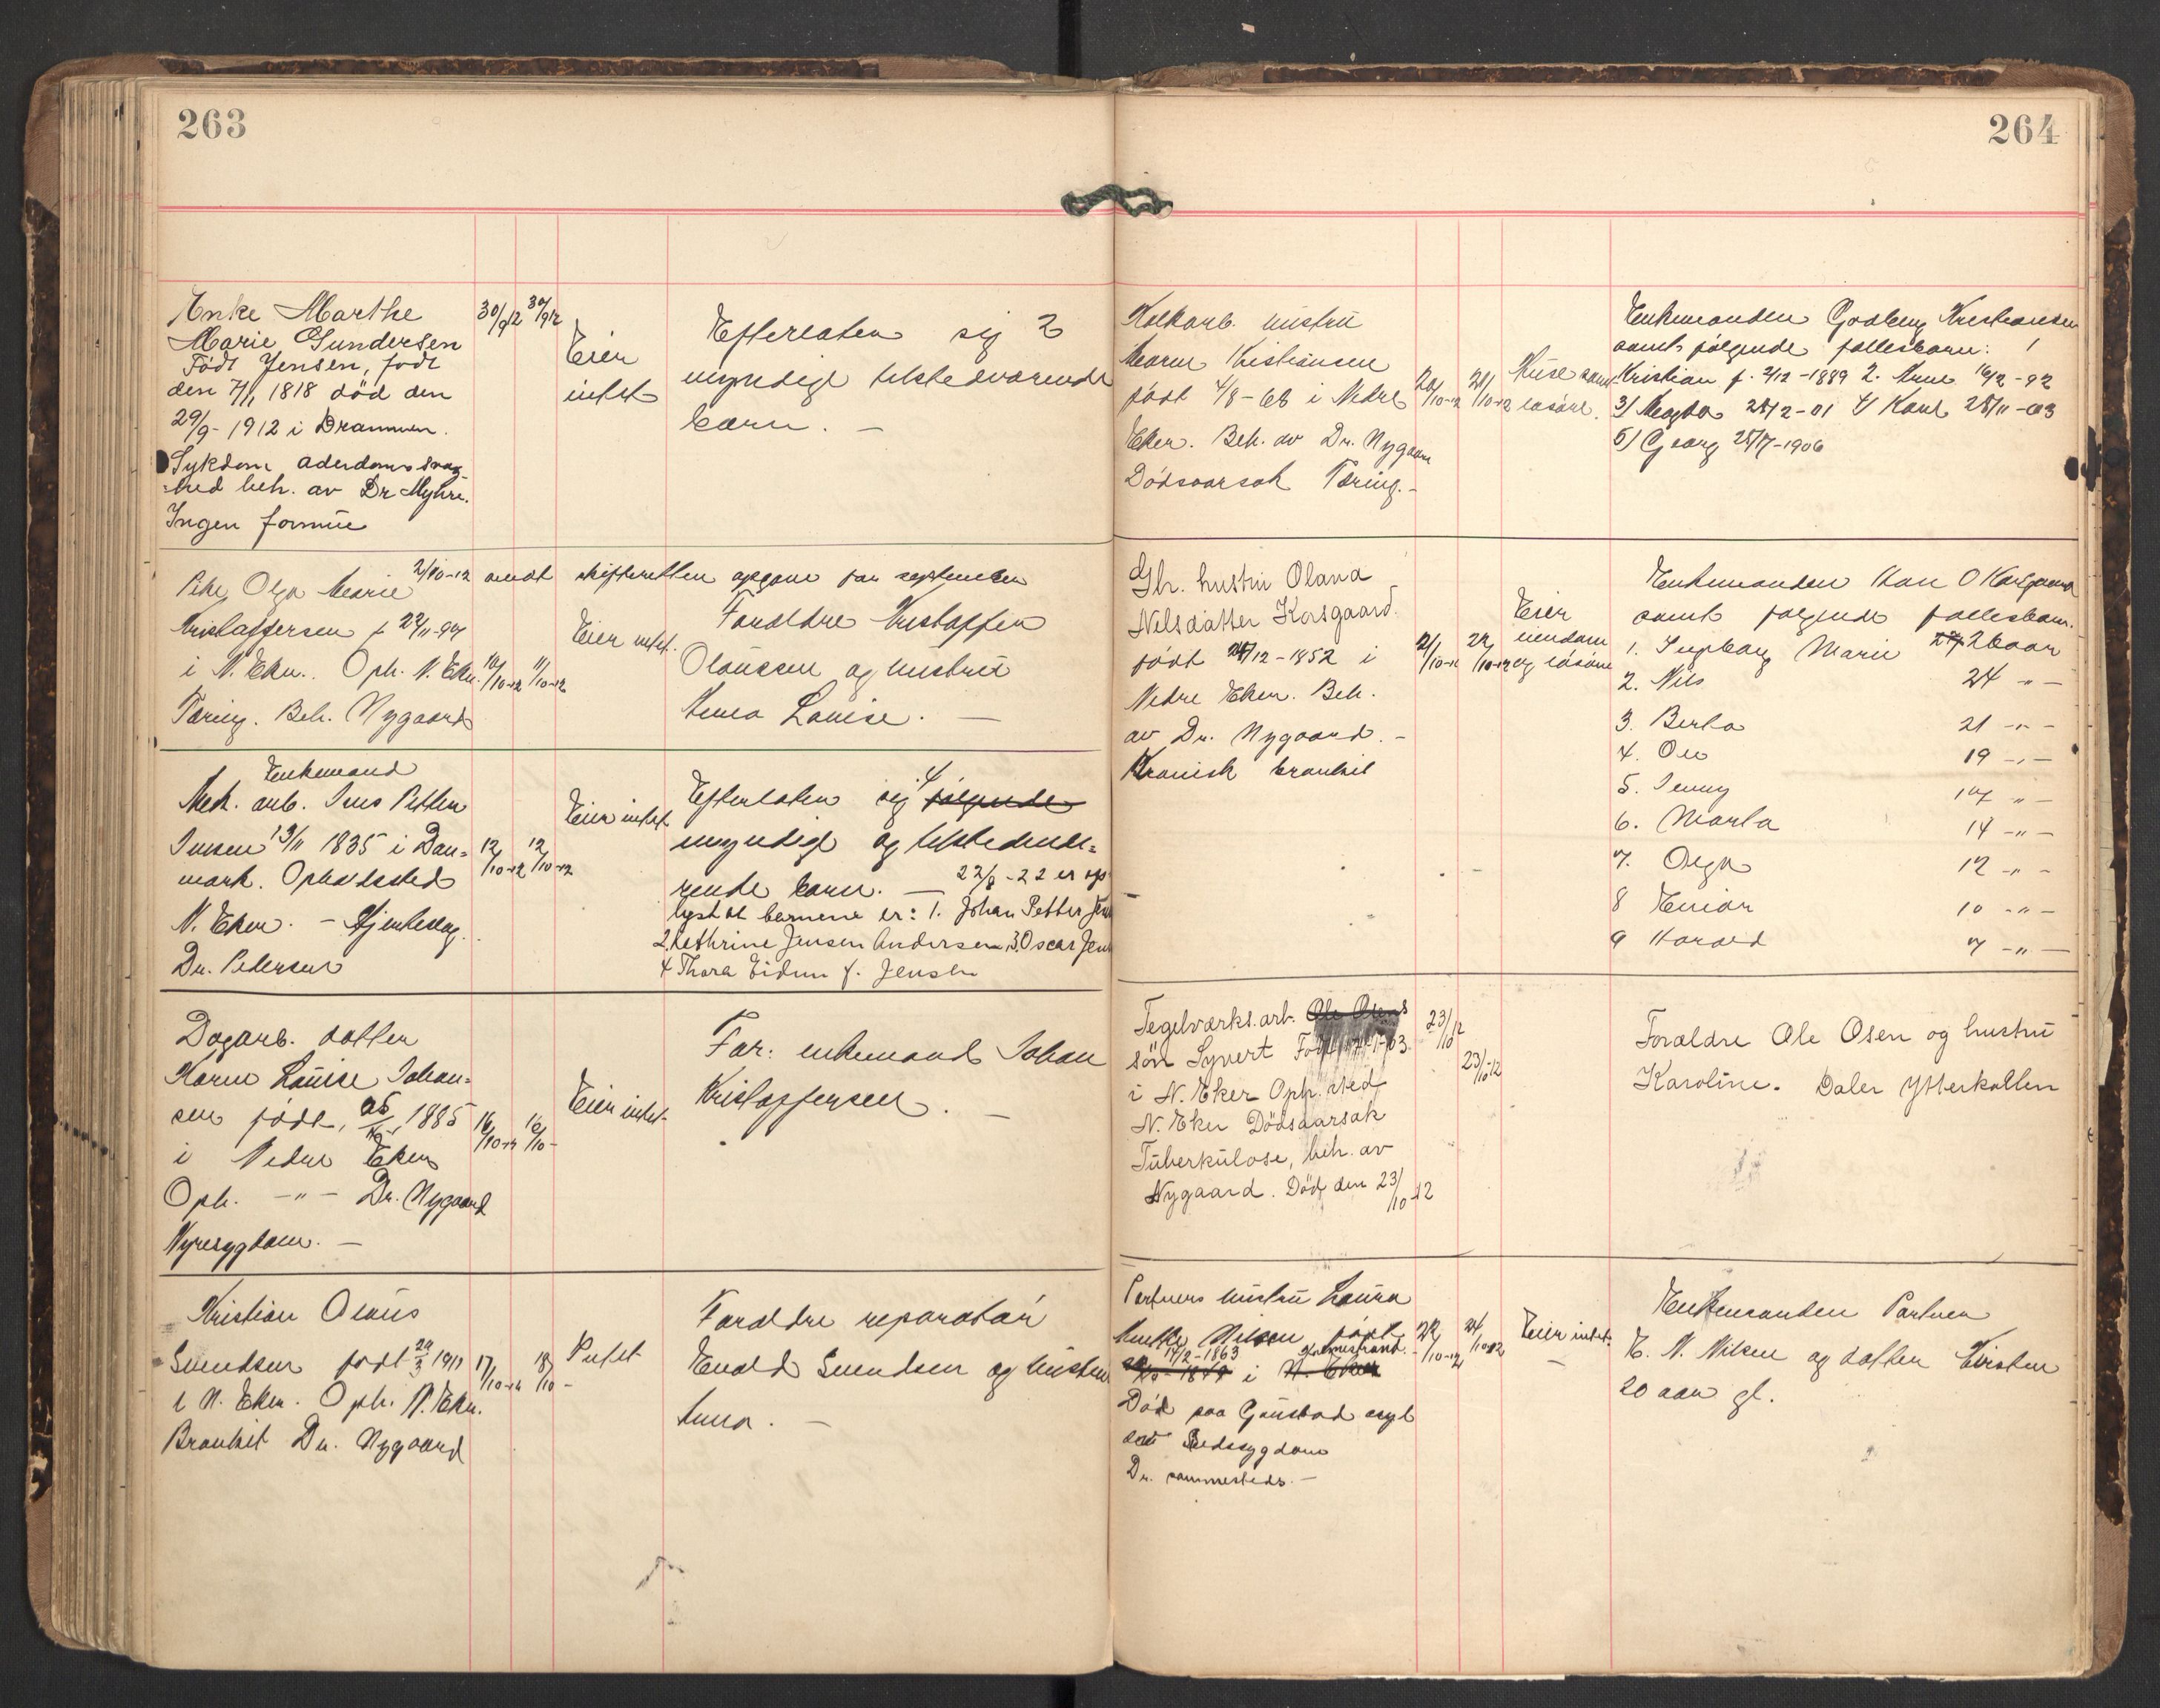 263
Enke Marthe
Marie Gundersen
Födt Jensen, födt
den 7/1 1818 död den
29/9-1912 i Drammen.
Sykdom aderdomssvag
-hed beh. av Dr Myhre.
Ingen formue
30/9 12 30/9 12
Eier
intet
Efterlater sig 2
myndige tilstedværende
barn. —
2/10-12 sendt skifteretten opgave for september
Pike Olga Marie
Kristoffersen f 22/11-94
i N. Eker. Oph. N. Eker.
Tæring. Beh. Nygaard
10/10-12 11/10-12
Eier intet.
Foreldre Kristoffer
Olaussen og hustru
Anna Louise. —
Enkemand
Mek. arb. Jens Petter
Jensen 13/11 1835 i Dan-
mark. Opholdssted
N. Eker. - Hjerteslag.
Dr. Pedersen
12/10-12 12/10-12
Eier intet
Efterlater sig 4 følgende
myndige og tilstedevæ-
rende barn. — 22/8-22 er op
lyst at barnene er: 1. Johan Petter Jens
2. Kathrine Jensen Andersen, 3. Oscar Jens
4 Thora Eidem f. Jensen
Dagarb. datter
Karen Louise Johan-
sen født, 1885
i Nedre Eker
Oph. -"- Dr. Nygaard
Nyresygdom. —
16/10-12 16/10-
Eier intet-
Far: enkemand Johan
Kristoffersen. —
Kristian Olaus
Svendsen født 29/3 1911
i N. Eker. Oph. N. Eker.
Bronkit Dr. Nygaard
17/10-12 18/10-
Intet
Foreldre reparatør
Evald Svendsen og hustru
Anna. —
264
hustru
Maren Kristiansen
født 4/8-68 i Nedre
Eker. Beh. av Dr. Nygaard
Dödsaarsak Tæring.-
20/10-12 21/10-12
Huse samt
løsøre.
Enkemanden Godberg Kristiansen
samt følgende fellesbarn: 1
Kristian f. 2/12-1889 2. Arne 16/2-92
3/ Magda 28/2-01 4/ Karl 28/11-03
5/ Georg 25/7-1906
Gbr. hustru Olava
Nilsdatter Korsgaard.
födt 24/12-1852 i
Nedre Eker. Beh.
av Dr. Nygaard. -
Kronisk bronkit
21/10-12 22/10-12
Eier
eiendom
og løsøre
Enkemanden Hans O Korsgaard
samt følgende fellesbarn.
1. Ingeborg Marie 27 26 aar
2. Nils 24 -"-
3. Berta 21 -"-
4. Ole 19 -"-
5. Jenny 17 -"-
6. Marta 14 -"-
7. Olga 12 -"-
8 Einar 10 -"-
9 Harald 7 -"-
Tegelværks.arb. Ole Olsens
sön Syvert Födt
i N. Eker Oph.sted
N. Eker Dödsaarsak
Tuberkulose, beh. av
Nygaard. Död den 23/10 12
23/10 12
23/10-12
Forældre Ole Olsen og hustru
Karoline. Daler Ytterkollen
Portners hustru Laura
Nilsen født
17/2-1863 Holmestrand.
i N. Eker
Död paa Gaustad asyl
Sindssygdom
Dr. sammesteds. —
22/10-12 24/10-12
Eier intet.
Enkemanden Portner
E. N. Nilsen og datter Kirsten
20 aar gl.